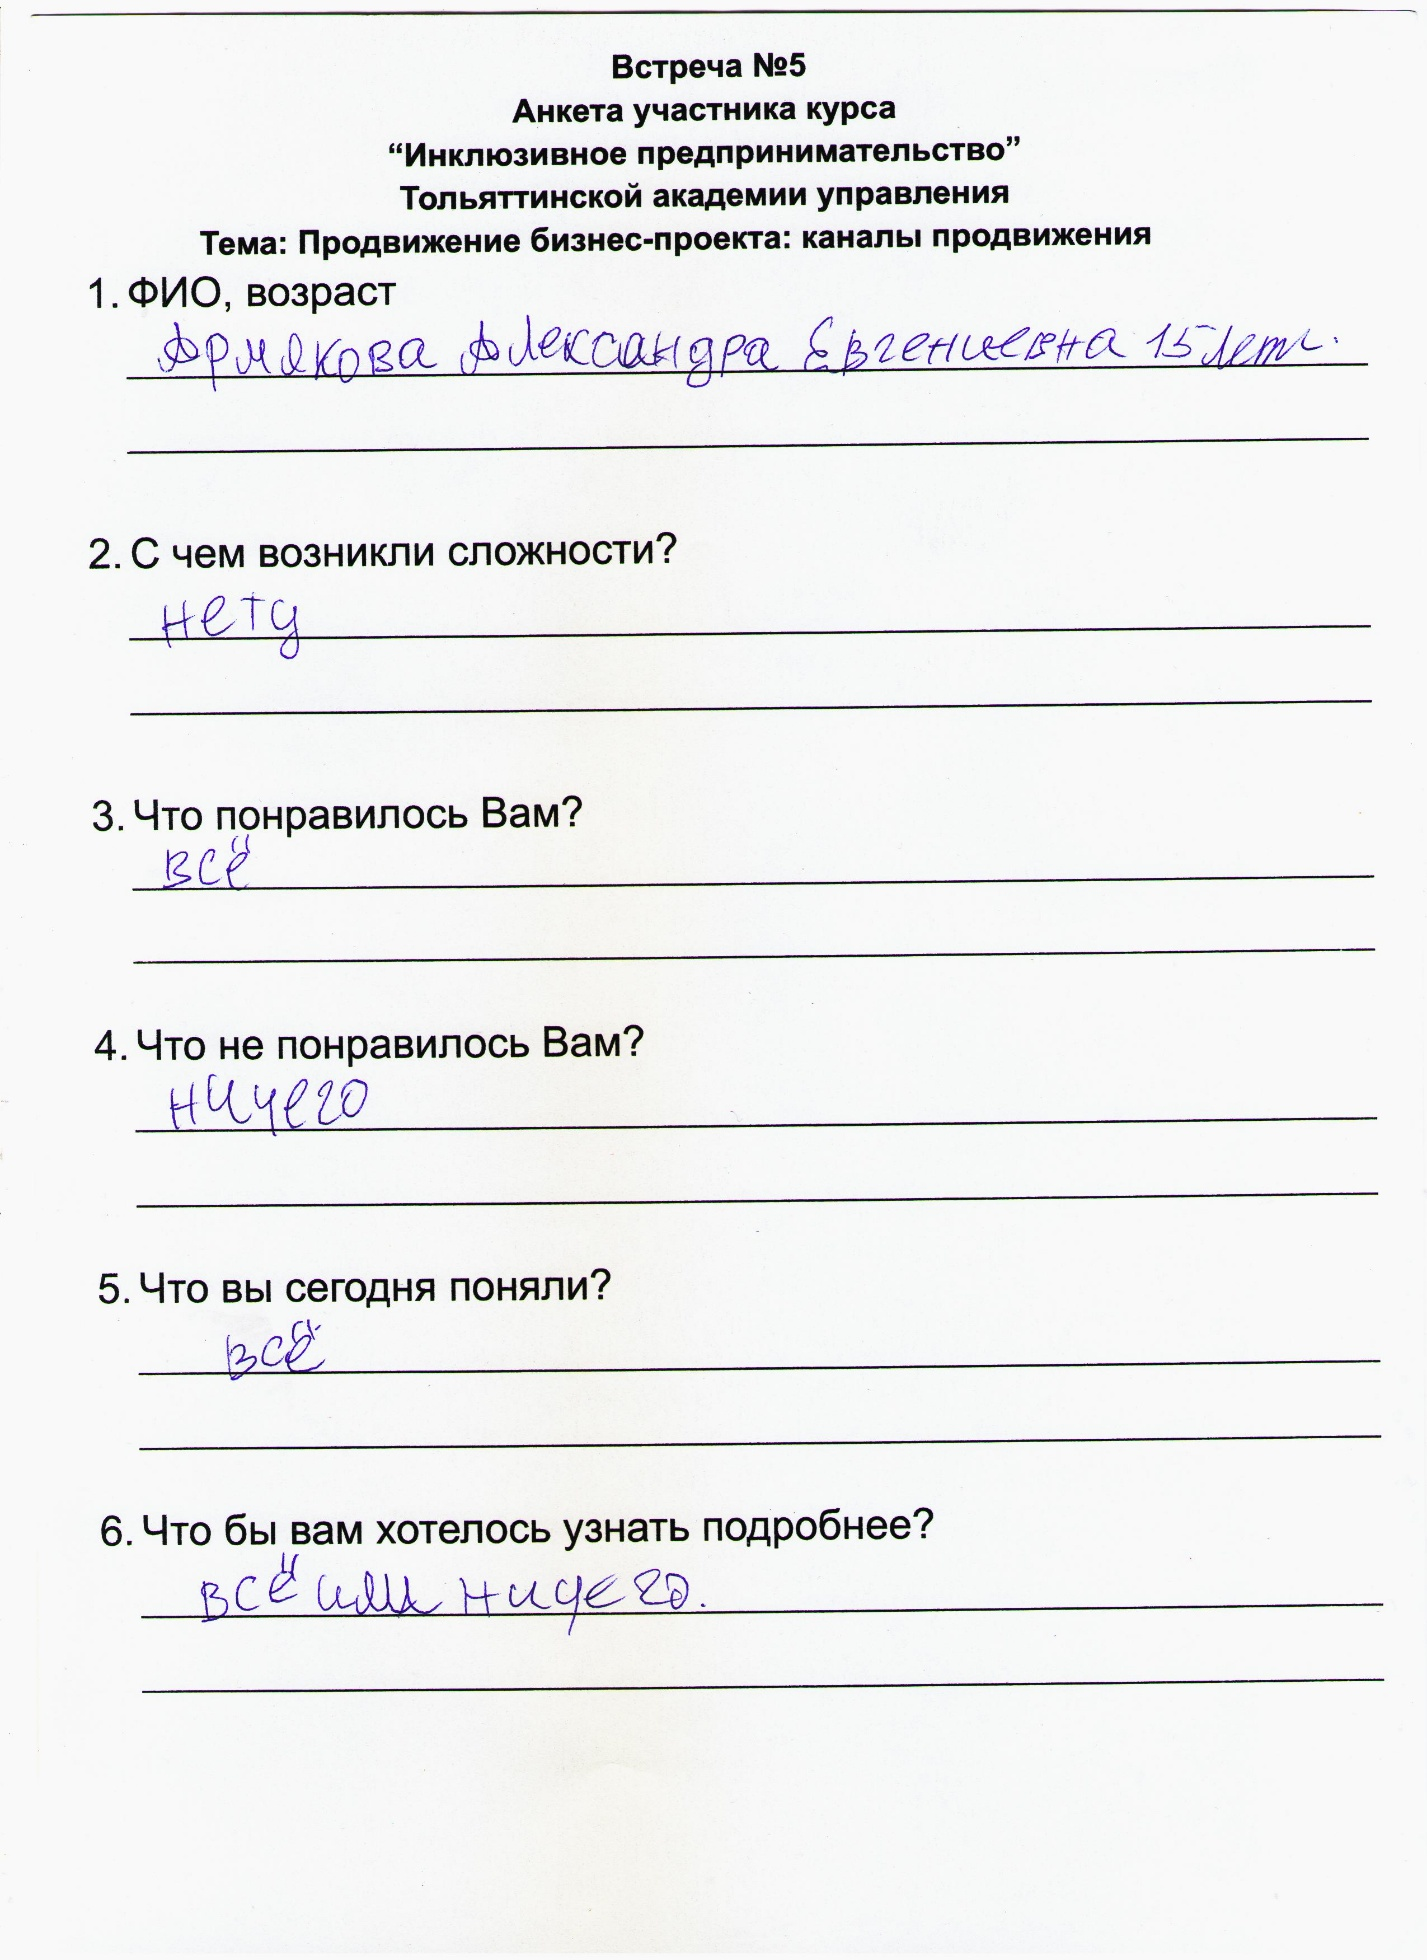 Встреча №5
Анкета участника курса
“Инклюзивное предпринимательство”
Тольяттинской академии управления
Тема: Продвижение бизнес-проекта: каналы продвижения
1. ФИО, возраст
Армякова Александра Евгениевна 15 лет.
2. С чем возникли сложности?
нету
3. Что понравилось Вам?
всё
4. Что не понравилось Вам?
ничего
5. Что вы сегодня поняли?
всё
6. Что бы вам хотелось узнать подробнее?
всё или ничего.